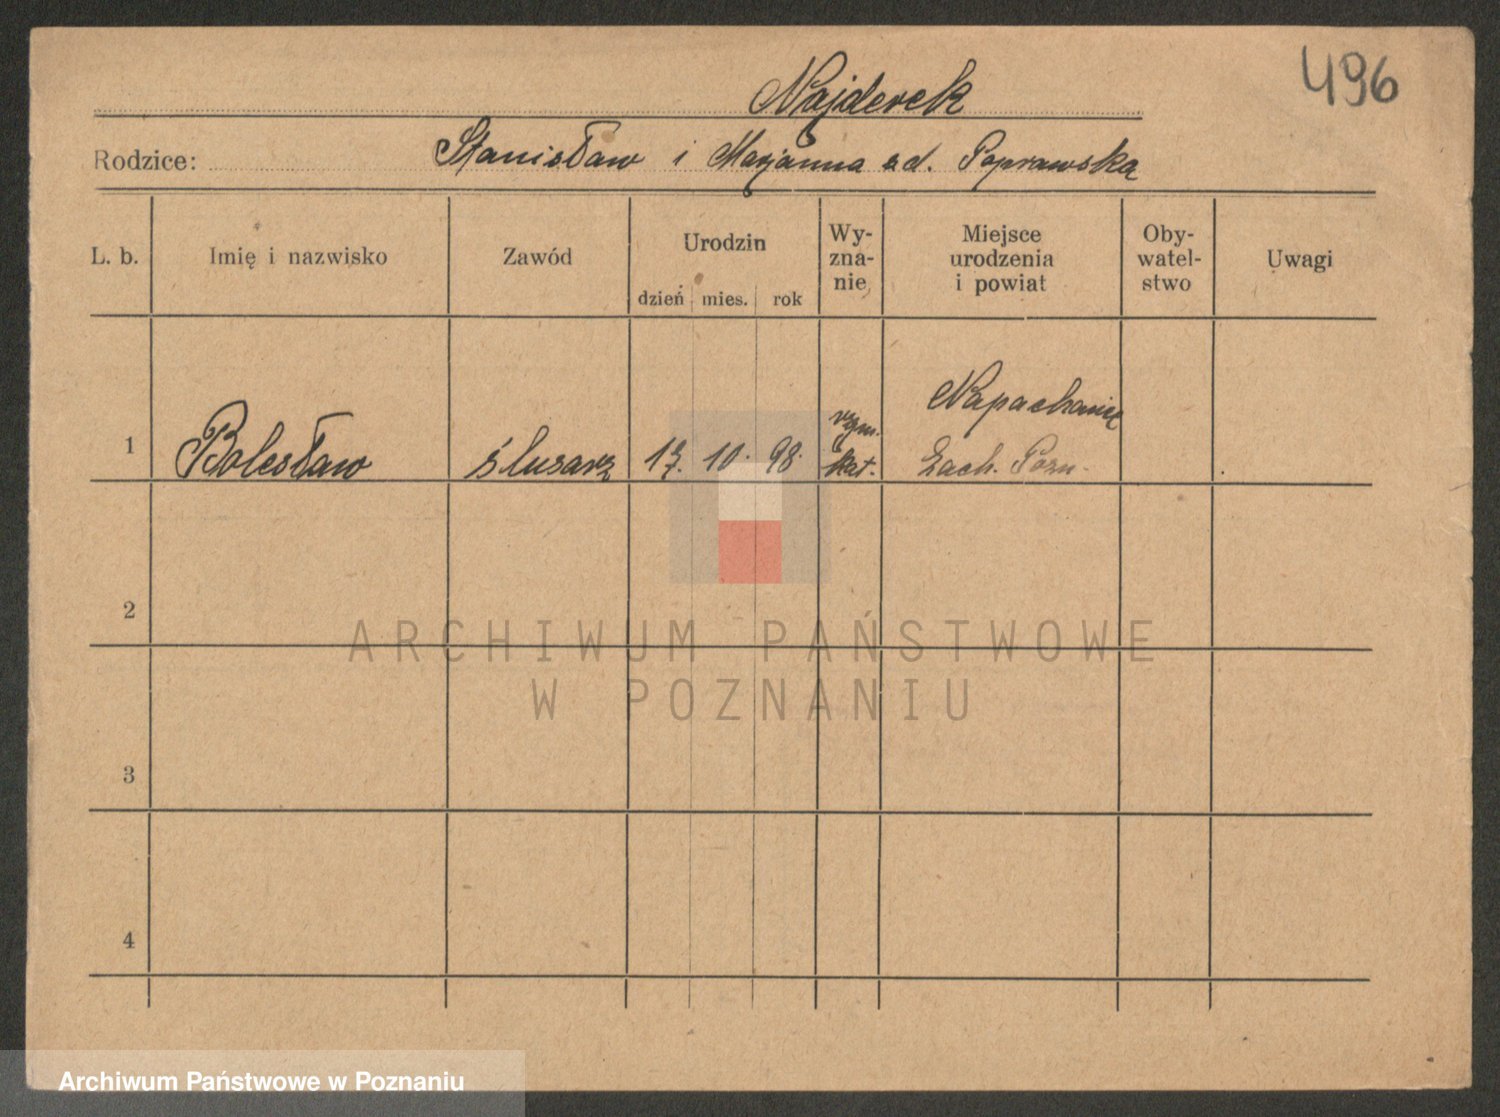 496
Najderek
Rodzice: Stanisław i Marjanna z d. Poprawska
L. b. Imię i nazwisko Zawód Urodzin dzień mies. rok Wy-zna-nie Miejsce urodzenia i powiat Oby-watel-stwo Uwagi
Napachanie
rzym.
1 Bolesław ślusarz 10. 98. kat. Zach. Pozn.
2
ARCHIWUM PAŃSTWOWE
W POZNANIU
3
4
Archiwum Państwowe w Poznaniu